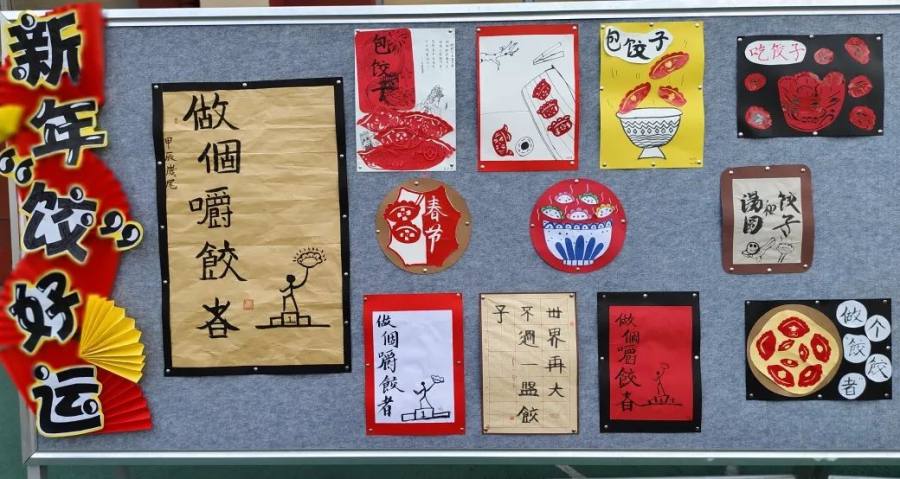 新年"饺"好运
做個嚼餃者
甲辰歲尾
包饺子
包饺子
吃饺子
春节
饺子
和
汤圆
做個嚼餃者
世界再大
不過一盤餃
子
做個嚼餃者
做个
餃餃
者